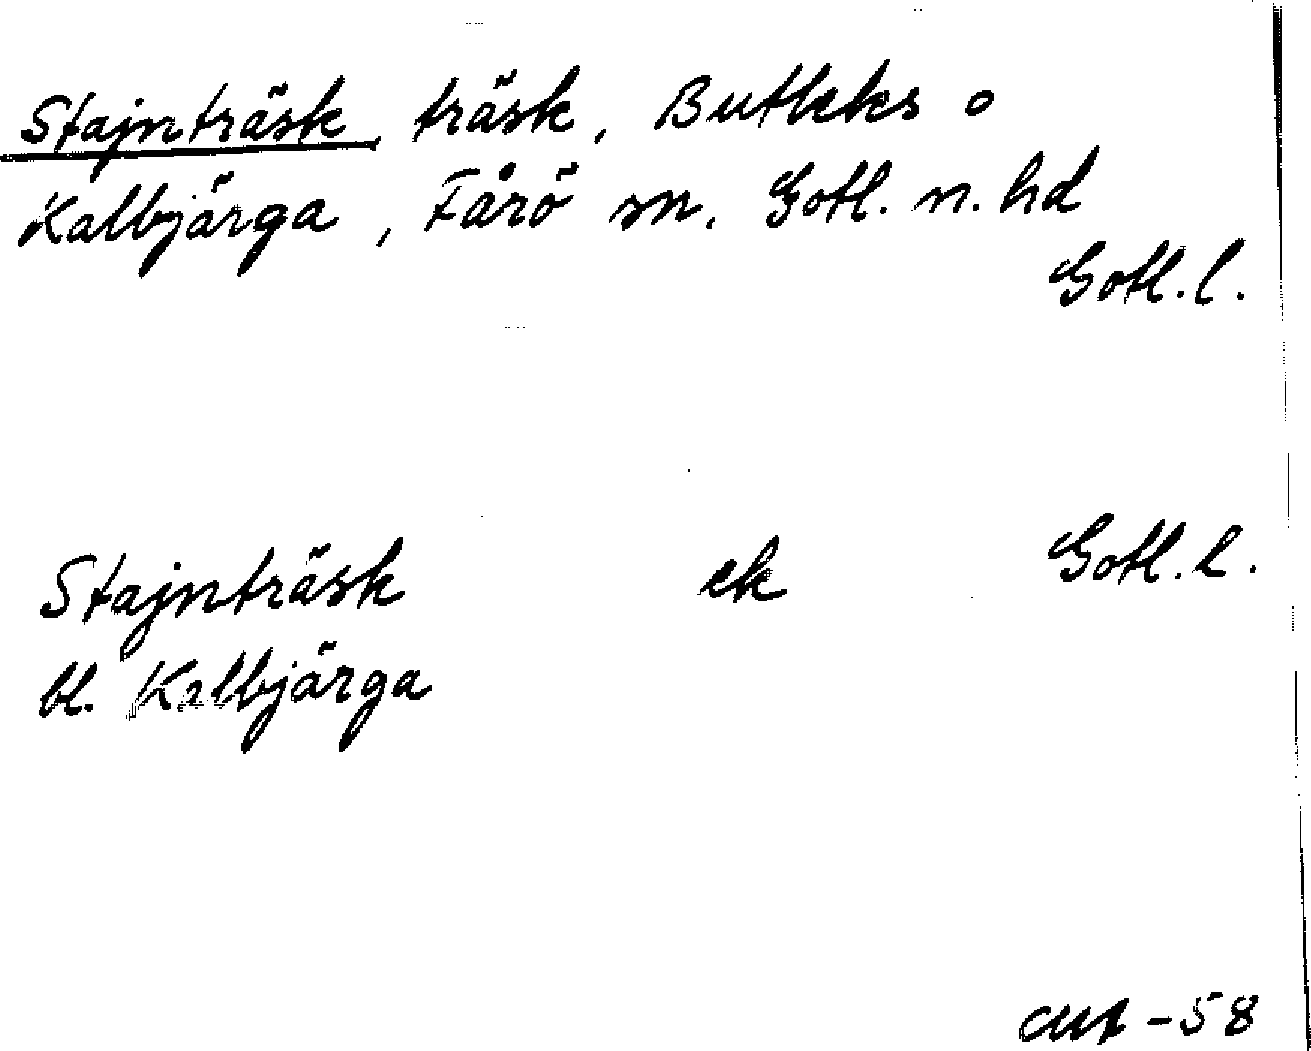 Stajnträsk, träsk, Butleks o
Kalbjärga, Fårö sn. Gotl. n. hd
Gotl. l.
Stajnträsk ek Gotl. l.
bl. Kalbjärga
-58